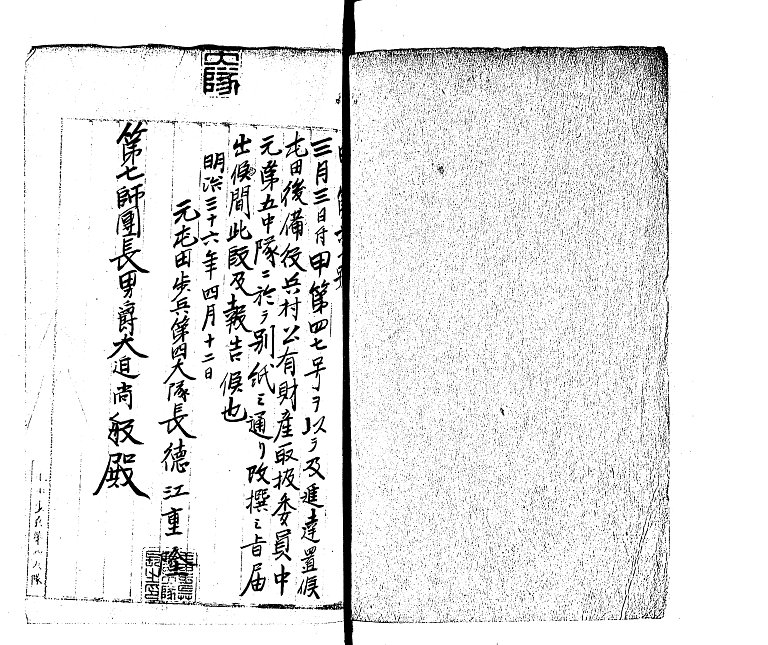 三月三日付甲第四七号ヲ以テ及進達置候
屯田後備役兵村公有財産取扱委員中
元第五中隊ニ於テ別紙之通リ改撰之旨届
出候間此段及報告候也
明治三十六年四月十二日
元屯田歩兵第四大隊長徳江重隆
第七師團長男爵大迫尚敏殿
大隊